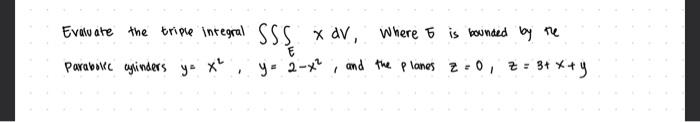 Evaluate the triple integral ∭_E x dV, where E is bounded by the
Parabolic cylinders y = x², y = 2-x², and the planes z = 0, z = 3+x+y